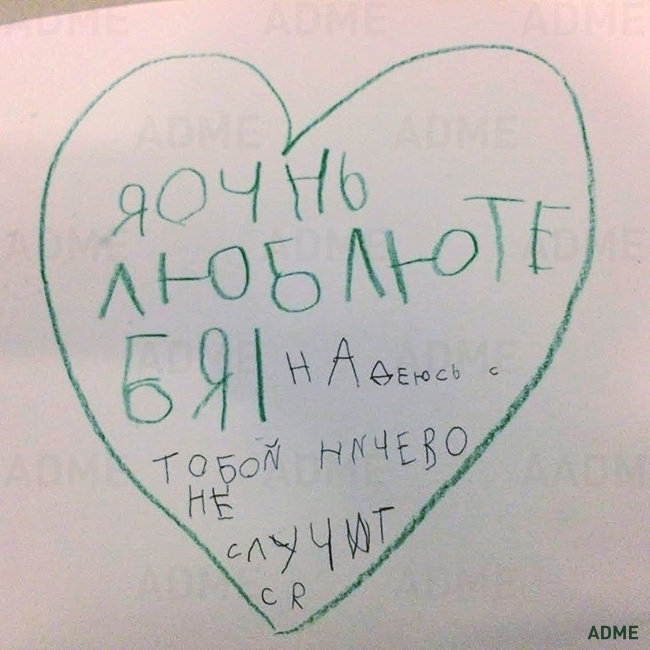 ЯОЧНЬ
ЛЮБЛЮТЕ
БЯ! НАДЕЮСЬ С
ТОБОЙ НИЧЕВО
НЕ
СЛУЧИТ
СЯ
ADME